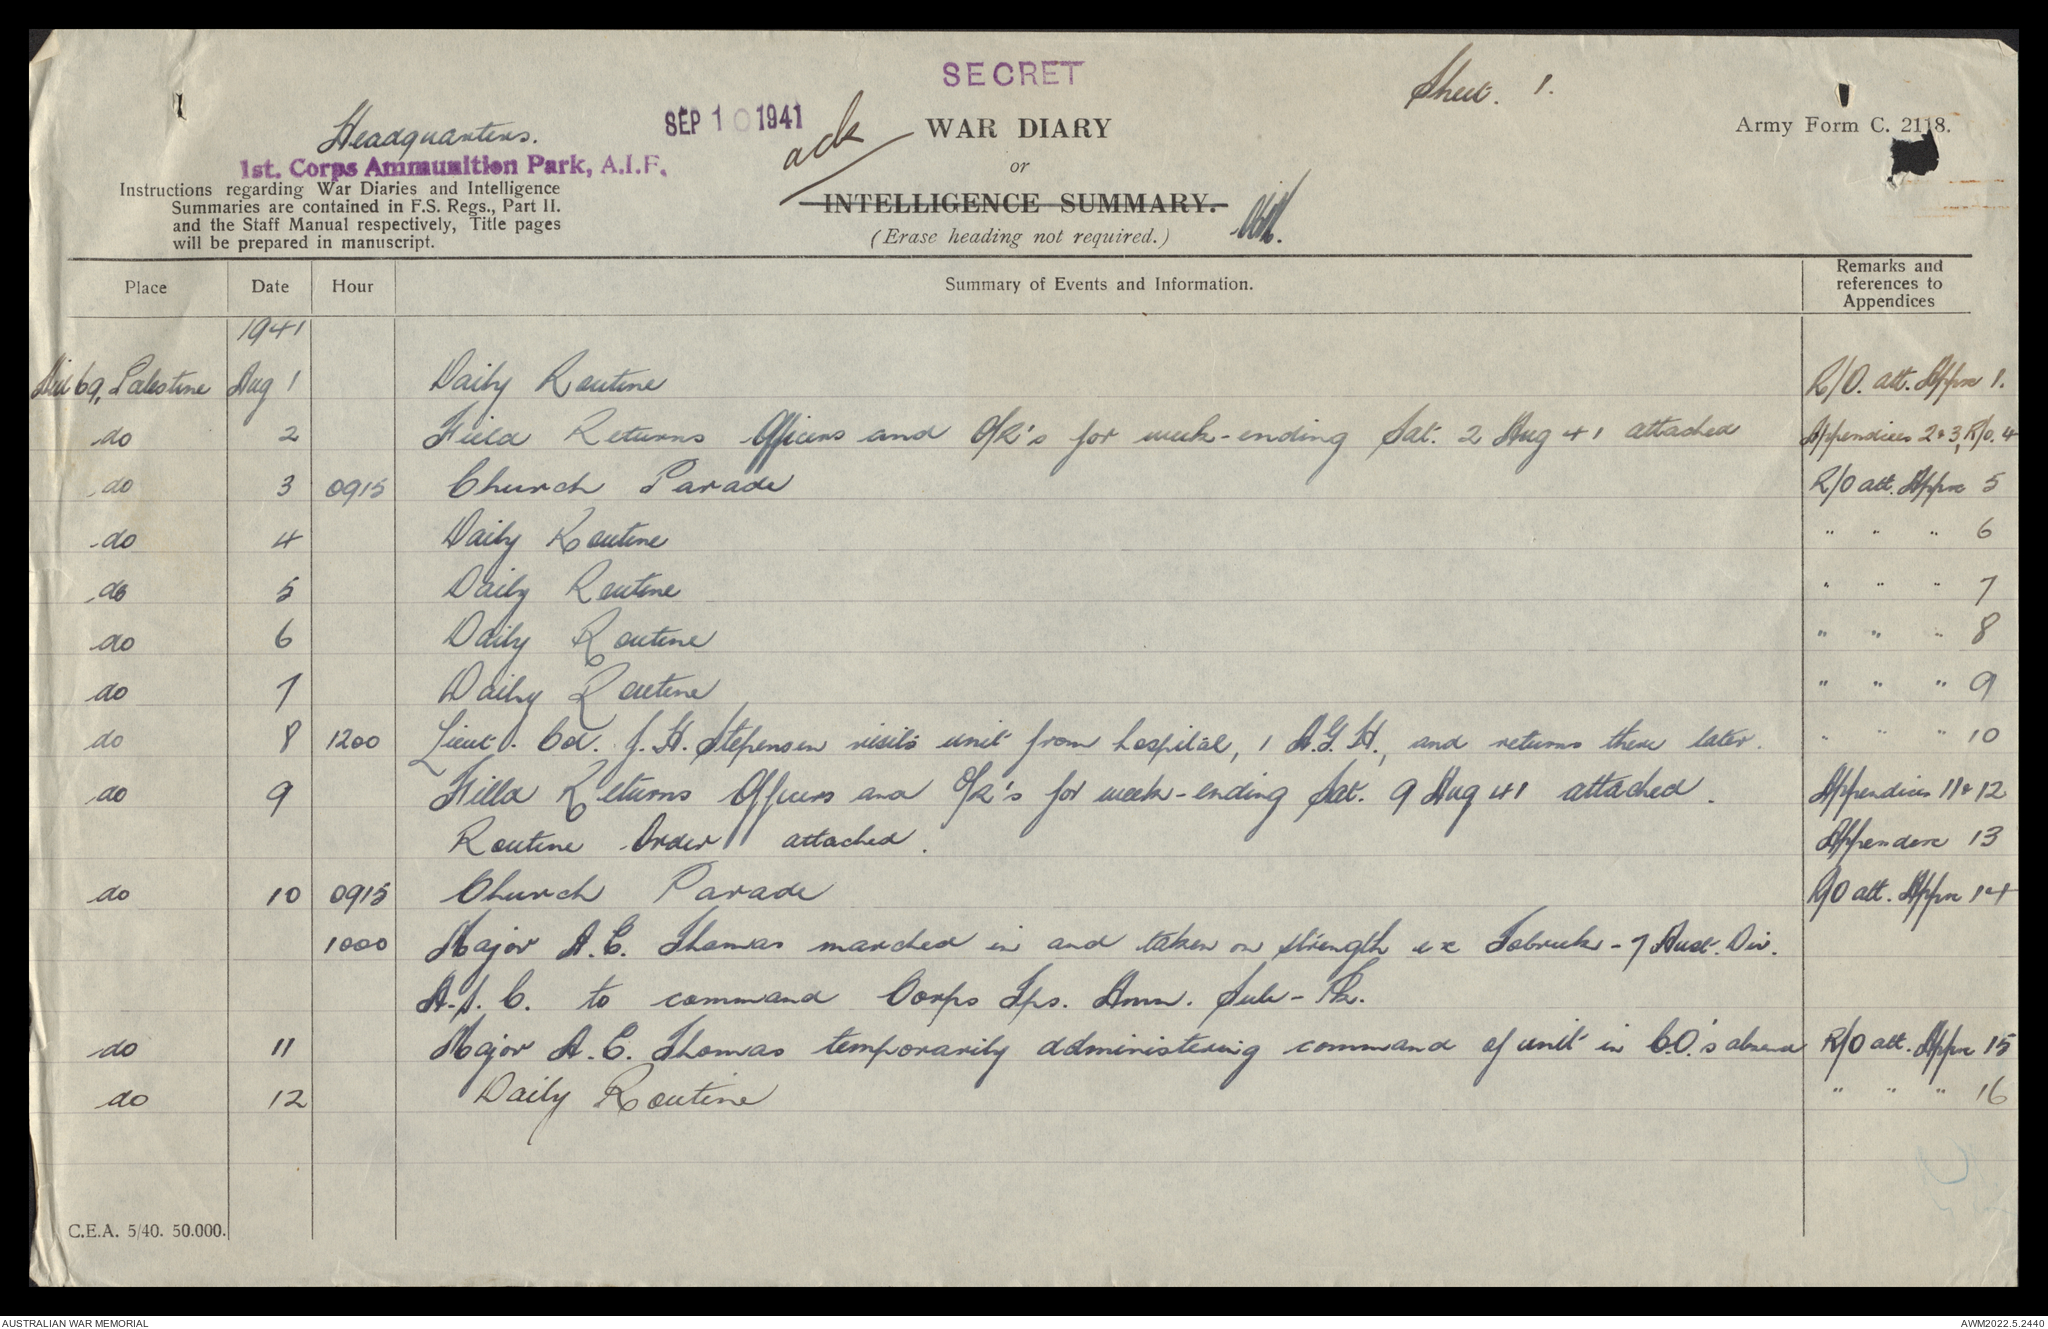 SECRET
Sheet. 1.
Headquarters.
SEP 10 1941
ack
WAR DIARY
Army Form C. 2118.
1st. Corps Ammunition Park, A.I.F.
or
Instructions regarding War Diaries and Intelligence
Summaries are contained in F.S. Regs., Part II.
and the Staff Manual respectively, Title pages
will be prepared in manuscript.
INTELLIGENCE SUMMARY.
(Erase heading not required.)
Place Date Hour Summary of Events and Information. Remarks and references to Appendices
1941
69, Palestine Aug 1 Daily Routine R/O. att. Appx 1.
do 2 Field Returns Officers and O/R's for week-ending Sat. 2 Aug 41 attached Appendices 2 & 3, R/o. 4
do 3 0915 Church Parade R/O att. Appx 5
do 4 Daily Routine " " " 6
do 5 Daily Routine " " " 7
do 6 Daily Routine " " " 8
do 7 Daily Routine " " " 9
do 8 1200 Lieut. Col. J. H. Stepensen visits unit from hospital, 1 A.G.H., and returns there later. " " " 10
do 9 Field Returns Officers and O/R's for week-ending Sat. 9 Aug 41 attached. Appendices 11 & 12
Routine Order attached. Appendix 13
do 10 0915 Church Parade R/O att. Appx 14
1000 Major A. C. Thomas marched in and taken on strength ex Tobruk - 7 Aust. Div.
A.S.C. to command Corps Tps. Amn. Sub-Pk.
do 11 Major A. C. Thomas temporarily administering command of unit in C.O.'s absence R/O att. Appx 15
do 12 Daily Routine " " " 16
C.E.A. 5/40. 50.000.
AUSTRALIAN WAR MEMORIAL AWM2022.5.2440